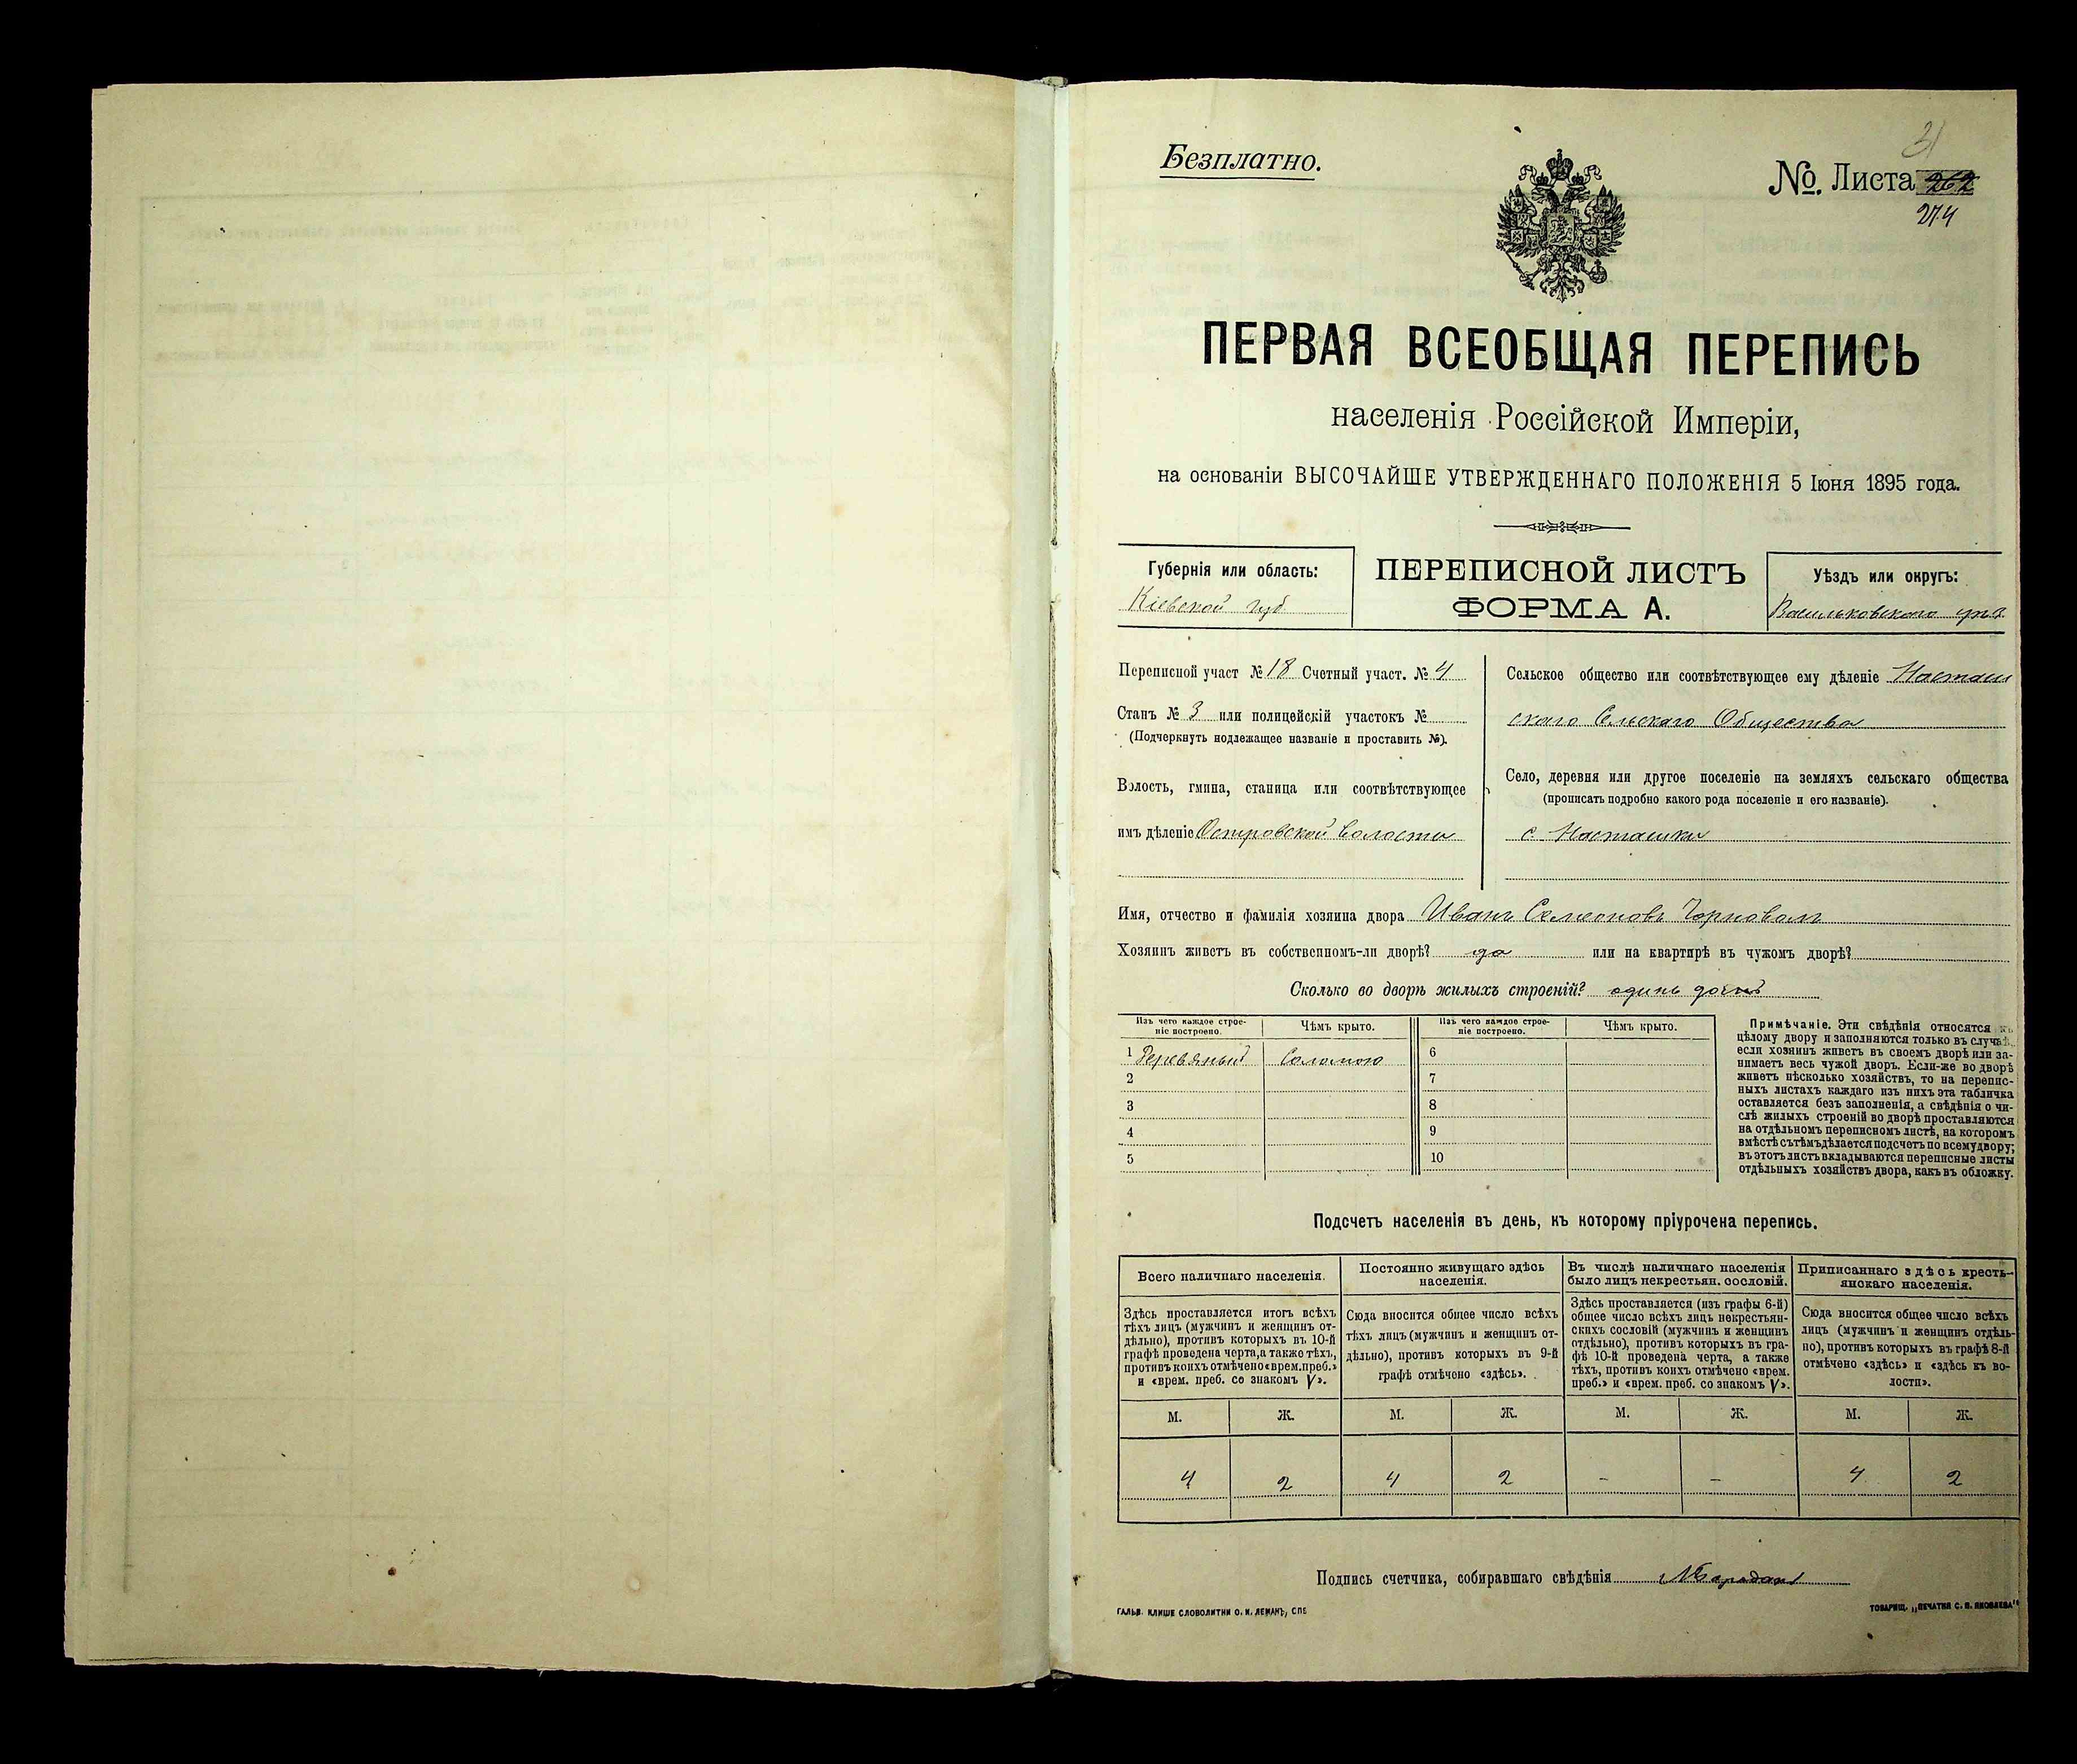 Безплатно.
№. Листа 262
274
ПЕРВАЯ ВСЕОБЩАЯ ПЕРЕПИСЬ
населенія Россійской Имперіи,
на основаніи ВЫСОЧАЙШЕ УТВЕРЖДЕННАГО ПОЛОЖЕНІЯ 5 Іюня 1895 года.
Губернія или область:
Кіевской губ
ПЕРЕПИСНОЙ ЛИСТЪ
ФОРМА А.
Уѣздъ или округъ:
Васильковскаго уѣз.
Переписной участ № 18 Счетный участ. № 4
Станъ № 3 или полицейскій участокъ №
(Подчеркнуть подлежащее названіе и проставить №).
Волость, гмина, станица или соотвѣтствующее
имъ дѣленіе Островской волости
Сельское общество или соотвѣтствующее ему дѣленіе Насташ
скаго Сельскаго Общества
Село, деревня или другое поселеніе на земляхъ сельскаго общества
(прописать подробно какого рода поселеніе и его названіе).
с. Насташки
Имя, отчество и фамилія хозяина двора Иванъ Семеоновъ Чорновол
Хозяинъ живетъ въ собственномъ-ли дворѣ? да или на квартирѣ въ чужомъ дворѣ?
Сколько во дворѣ жилыхъ строеній? одинь домъ
Изъ чего каждое строе-
ніе построено.
Чѣмъ крыто.
Изъ чего каждое строе-
ніе построено.
Чѣмъ крыто.
1 Деревяный Соломою 6
2 7
3 8
4 9
5 10
Примѣчаніе. Эти свѣдѣнія относятся къ
цѣлому двору и заполняются только въ случаѣ,
если хозяинъ живетъ въ своемъ дворѣ или за-
нимаетъ весь чужой дворъ. Если-же во дворѣ
живетъ нѣсколько хозяйствъ, то на перепис-
ныхъ листахъ каждаго изъ нихъ эта табличка
оставляется безъ заполненія, а свѣдѣнія о чи-
слѣ жилыхъ строеній во дворѣ проставляются
на отдѣльномъ переписномъ листѣ, на которомъ
вмѣстѣ съ тѣмъ дѣлается подсчетъ по всему двору;
въ этотъ листъ вкладываются переписные листы
отдѣльныхъ хозяйствъ двора, какъ въ обложку.
Подсчетъ населенія въ день, къ которому пріурочена перепись.
Всего наличнаго населенія.
Постоянно живущаго здѣсь
населенія.
Въ числѣ наличнаго населенія
было лицъ некрестьян. сословій.
Приписаннаго здѣсь кресть-
янскаго населенія.
Здѣсь проставляется итогъ всѣхъ
тѣхъ лицъ (мужчинъ и женщинъ от-
дѣльно), противъ которыхъ въ 10-й
графѣ проведена черта, а также тѣхъ,
противъ коихъ отмѣчено «врем. преб.»
и «врем. преб. со знакомъ V».
Сюда вносится общее число всѣхъ
тѣхъ лицъ (мужчинъ и женщинъ от-
дѣльно), противъ которыхъ въ 9-й
графѣ отмѣчено «здѣсь».
Здѣсь проставляется (изъ графы 6-й)
общее число всѣхъ лицъ некрестьян-
скихъ сословій (мужчинъ и женщинъ
отдѣльно), противъ которыхъ въ гра-
фѣ 10-й проведена черта, а также
тѣхъ, противъ коихъ отмѣчено «врем.
преб.» и «врем. преб. со знакомъ V».
Сюда вносится общее число всѣхъ
лицъ (мужчинъ и женщинъ отдѣль-
но), противъ которыхъ въ графѣ 8-й
отмѣчено «здѣсь» и «здѣсь къ во-
лости».
М. Ж. М. Ж. М. Ж. М. Ж.
4 2 4 2 - - 4 2
Подпись счетчика, собиравшаго свѣдѣнія
ГАЛЬВ. КЛИШЕ СЛОВОЛИТНИ О. И. ЛЕМАНЪ, СПБ
ТОВАРИЩ. „ПЕЧАТНЯ С. П. ЯКОВЛЕВА"